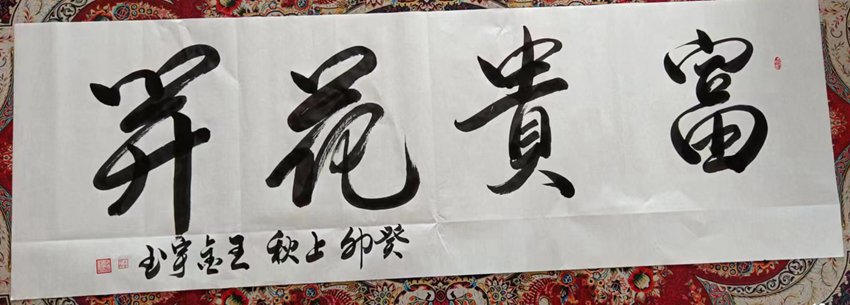 富貴花開
癸卯上秋 王金宇书